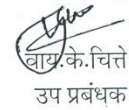 वाय.के.चित्ते
उप प्रबंधक